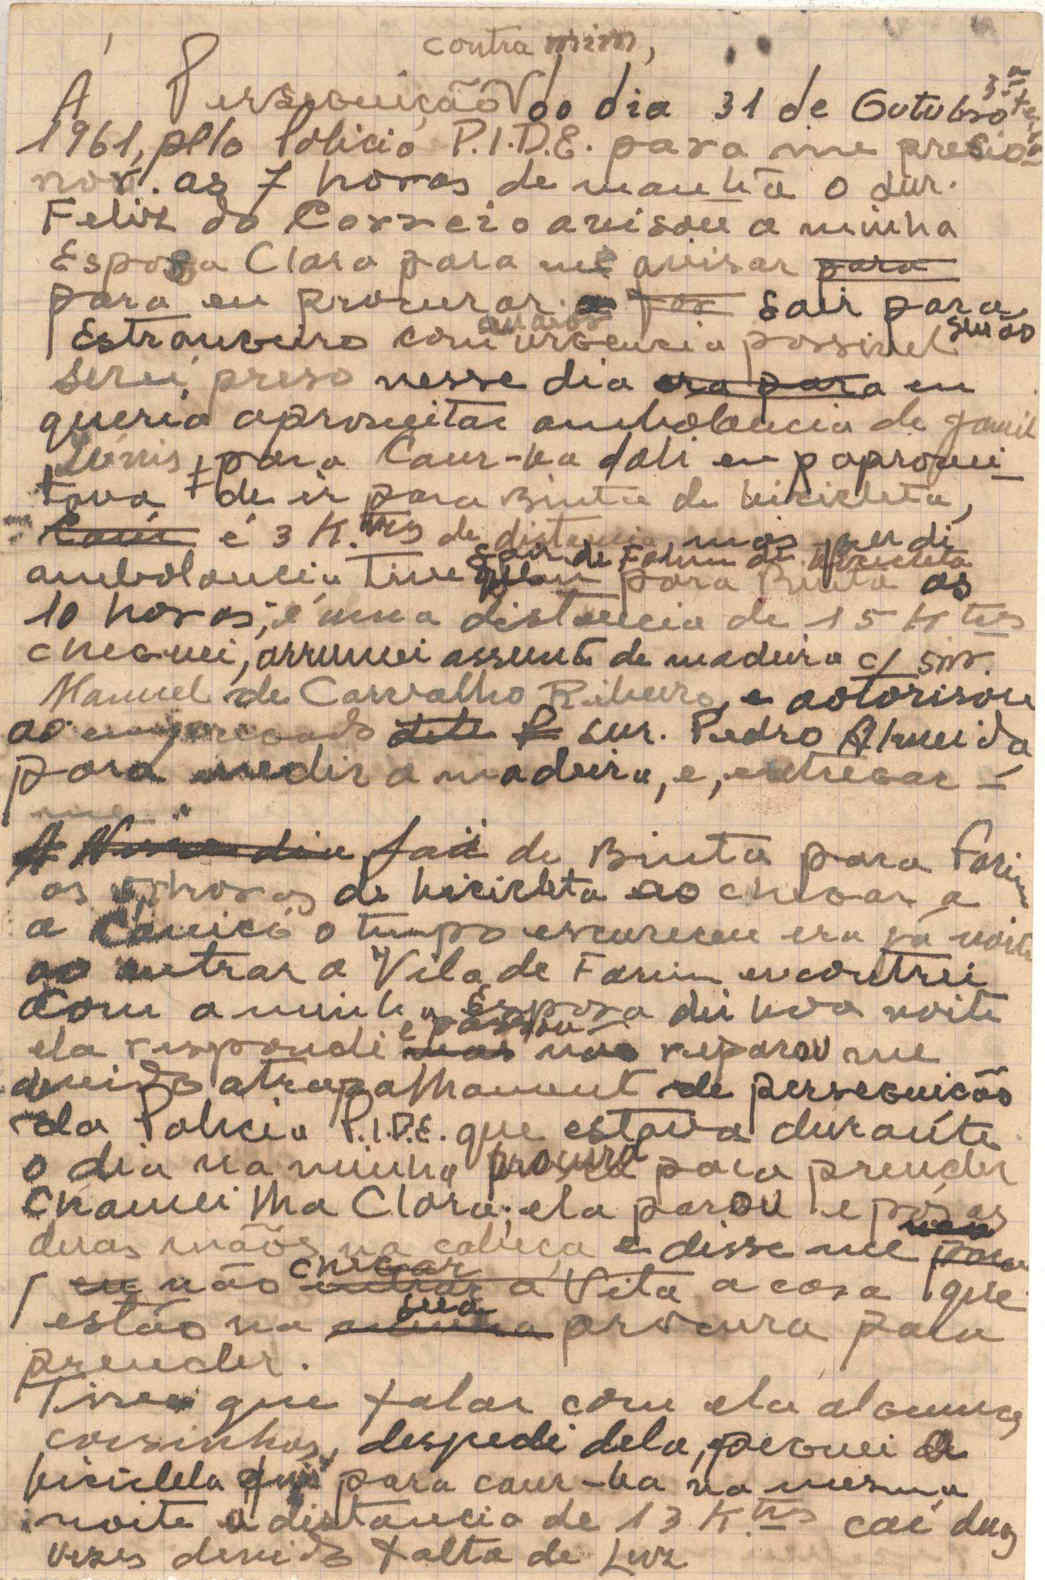 contra mim,
A Perseguição do dia 31 de Outubro 3ª
1961, pelo Policia P.I.D.E. para me presio-
nar. as 7 horas de manhã o snr.
Feliz do Correio avisou a minha
Esposa Clara para me avisar para
para eu procurar a Sair para
Estrangeiro com urgencia possivel senão
Serei preso nesse dia era para eu
queria aproveitar ambolancia de
para Caur-ba dali eu paprovei-
tava de ir para Binta de bicicleta,
é 3 K.tros de distancia mas perdi
ambolancia Tive Sair de Farim de bicicleta para Binta as
10 horas, é uma distancia de 15 Ktros
cheguei, arrumei assunt de madeira c/ snr.
Manuel de Carvalho Ribeiro, e aotorisou
ao empregado snr. Pedro Almeida
para medir a madeira, e, entregar-
me.
de Binta para Farim
as horas de bicicleta ao chegar a
a o tempo escureceu era já noite
ao entrar a Vila de Farim encontrei
Com a minha Esposa dei boa noite
ela respondi e passou não reparou me
devido atrapalhament de perseguição
da Policia P.I.D.E. que estava durante
o dia na minha procura para prender
Chamei lha Clara; ela parou e pôs as
duas mãos na cabeça e disse me
não chegar a Vita a casa que
estão na sua procura para
prender.
Tive que falar com ela algumas
coisinhas, despedi dela, peguei a
bicicleta fui para caur-ba na mesma
noite a distancia de 13 K.tros caí duas
vezes devido falta de Luz